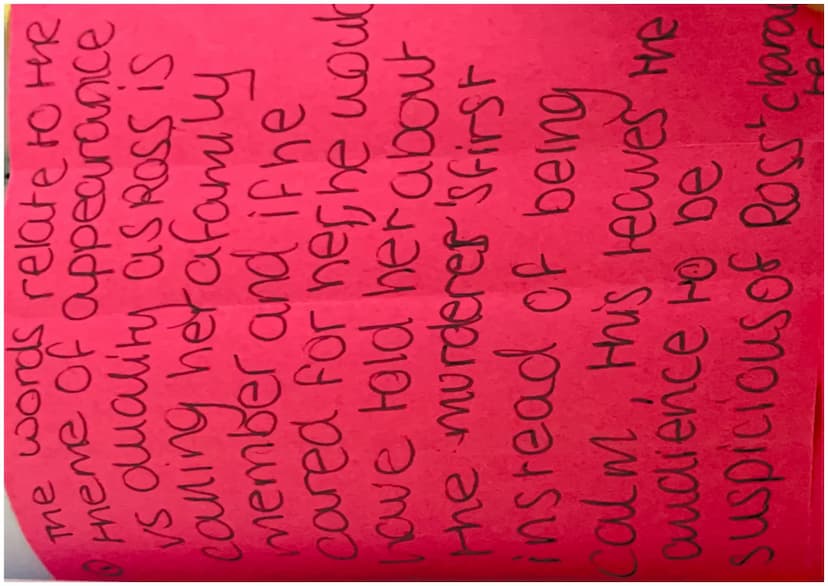 The words relate to the
theme of appearance
vs duality as Ross is
calling her a family
member and if he
cared for her, he would
have told her about
the murderer's first
instead of being
calm, this leaves the
audience to be
suspicious of Ross' charac
ter